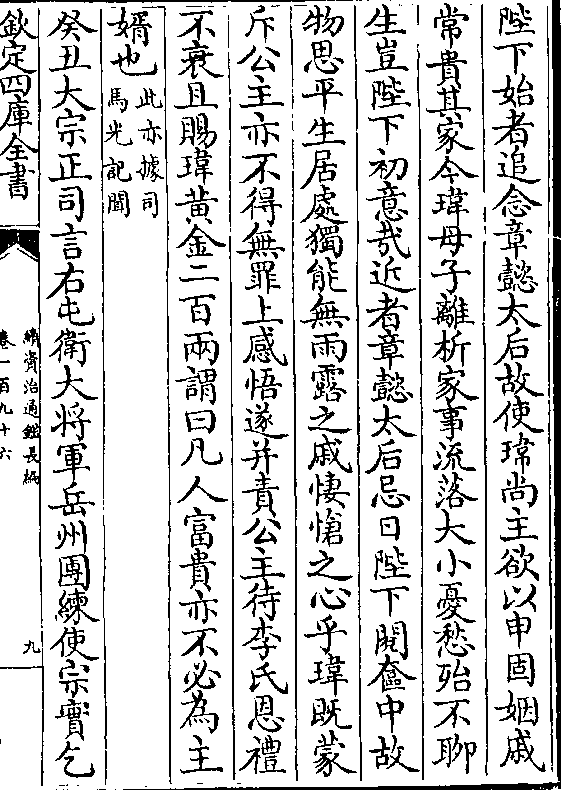 陛下始者追念章懿太后故使瑋尚主欲以申固姻戚
常貴其家今瑋母子離析家事流落大小憂愁殆不聊
生豈陛下初意哉近者章懿太后忌日陛下閱奩中故
物思平生居處獨能無雨露之戚悽愴之心乎瑋既蒙
斥公主亦不得無罪上感悟遂并責公主待李氏恩禮
不衰且賜瑋黃金二百兩謂曰凡人富貴亦不必為主
婿也此亦據司馬光記聞
癸丑大宗正司言右屯衛大將軍岳州團練使宗實乞
欽定四庫全書
續資治通鑑長編
卷一百九十六
九